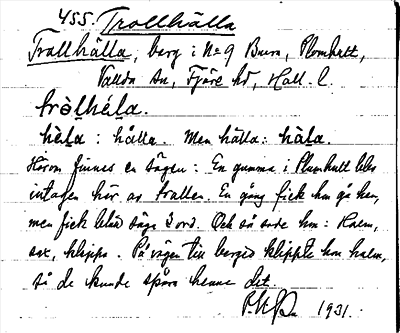 455. Trollhälla
Trollhälla, berg i No 9 Buera, Plomhult,
Vallda sn, Fjäre hd, Hall. l.
trɔlhɛla.
hɛla : hälla. Men hälla: hɛla.
Härom finnes en sägen: En gumma i Plumhult blev
intagen här av trollen. En gång fick hon gå hem,
men fick blott säga 3 ord. Och så sade hon: Halm,
sax, klippa. På vägen till berget klippte hon halm,
så de kunde spåra henne dit.
1931.